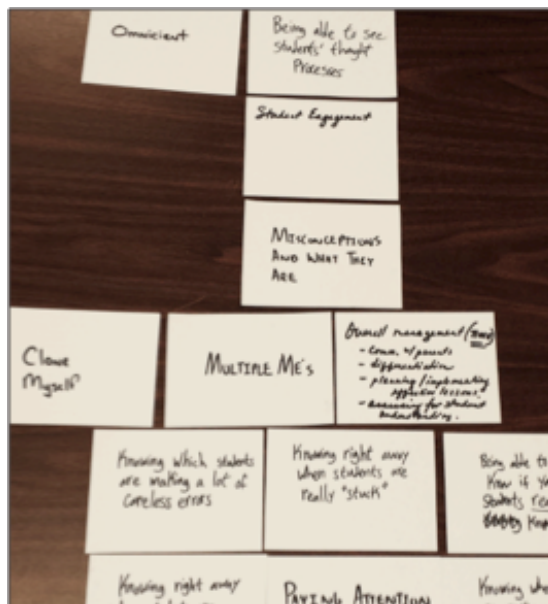 Omnicient
Being able to see
students' thought
Processes
Student Engagement
MISCONCEPTIONS
AND WHAT THEY
ARE
Clone
Myself
MULTIPLE ME'S
Overall management (
- comm. w/ parents
- differentiation
- planning/implementing
effective lessons.
- assessing for student
understanding.
Knowing which students
are making a lot of
careless errors
Knowing right away
when students are
really "stuck"
Being able to
Know if
Students
Knowing right away
PAYING ATTENTION
Knowing